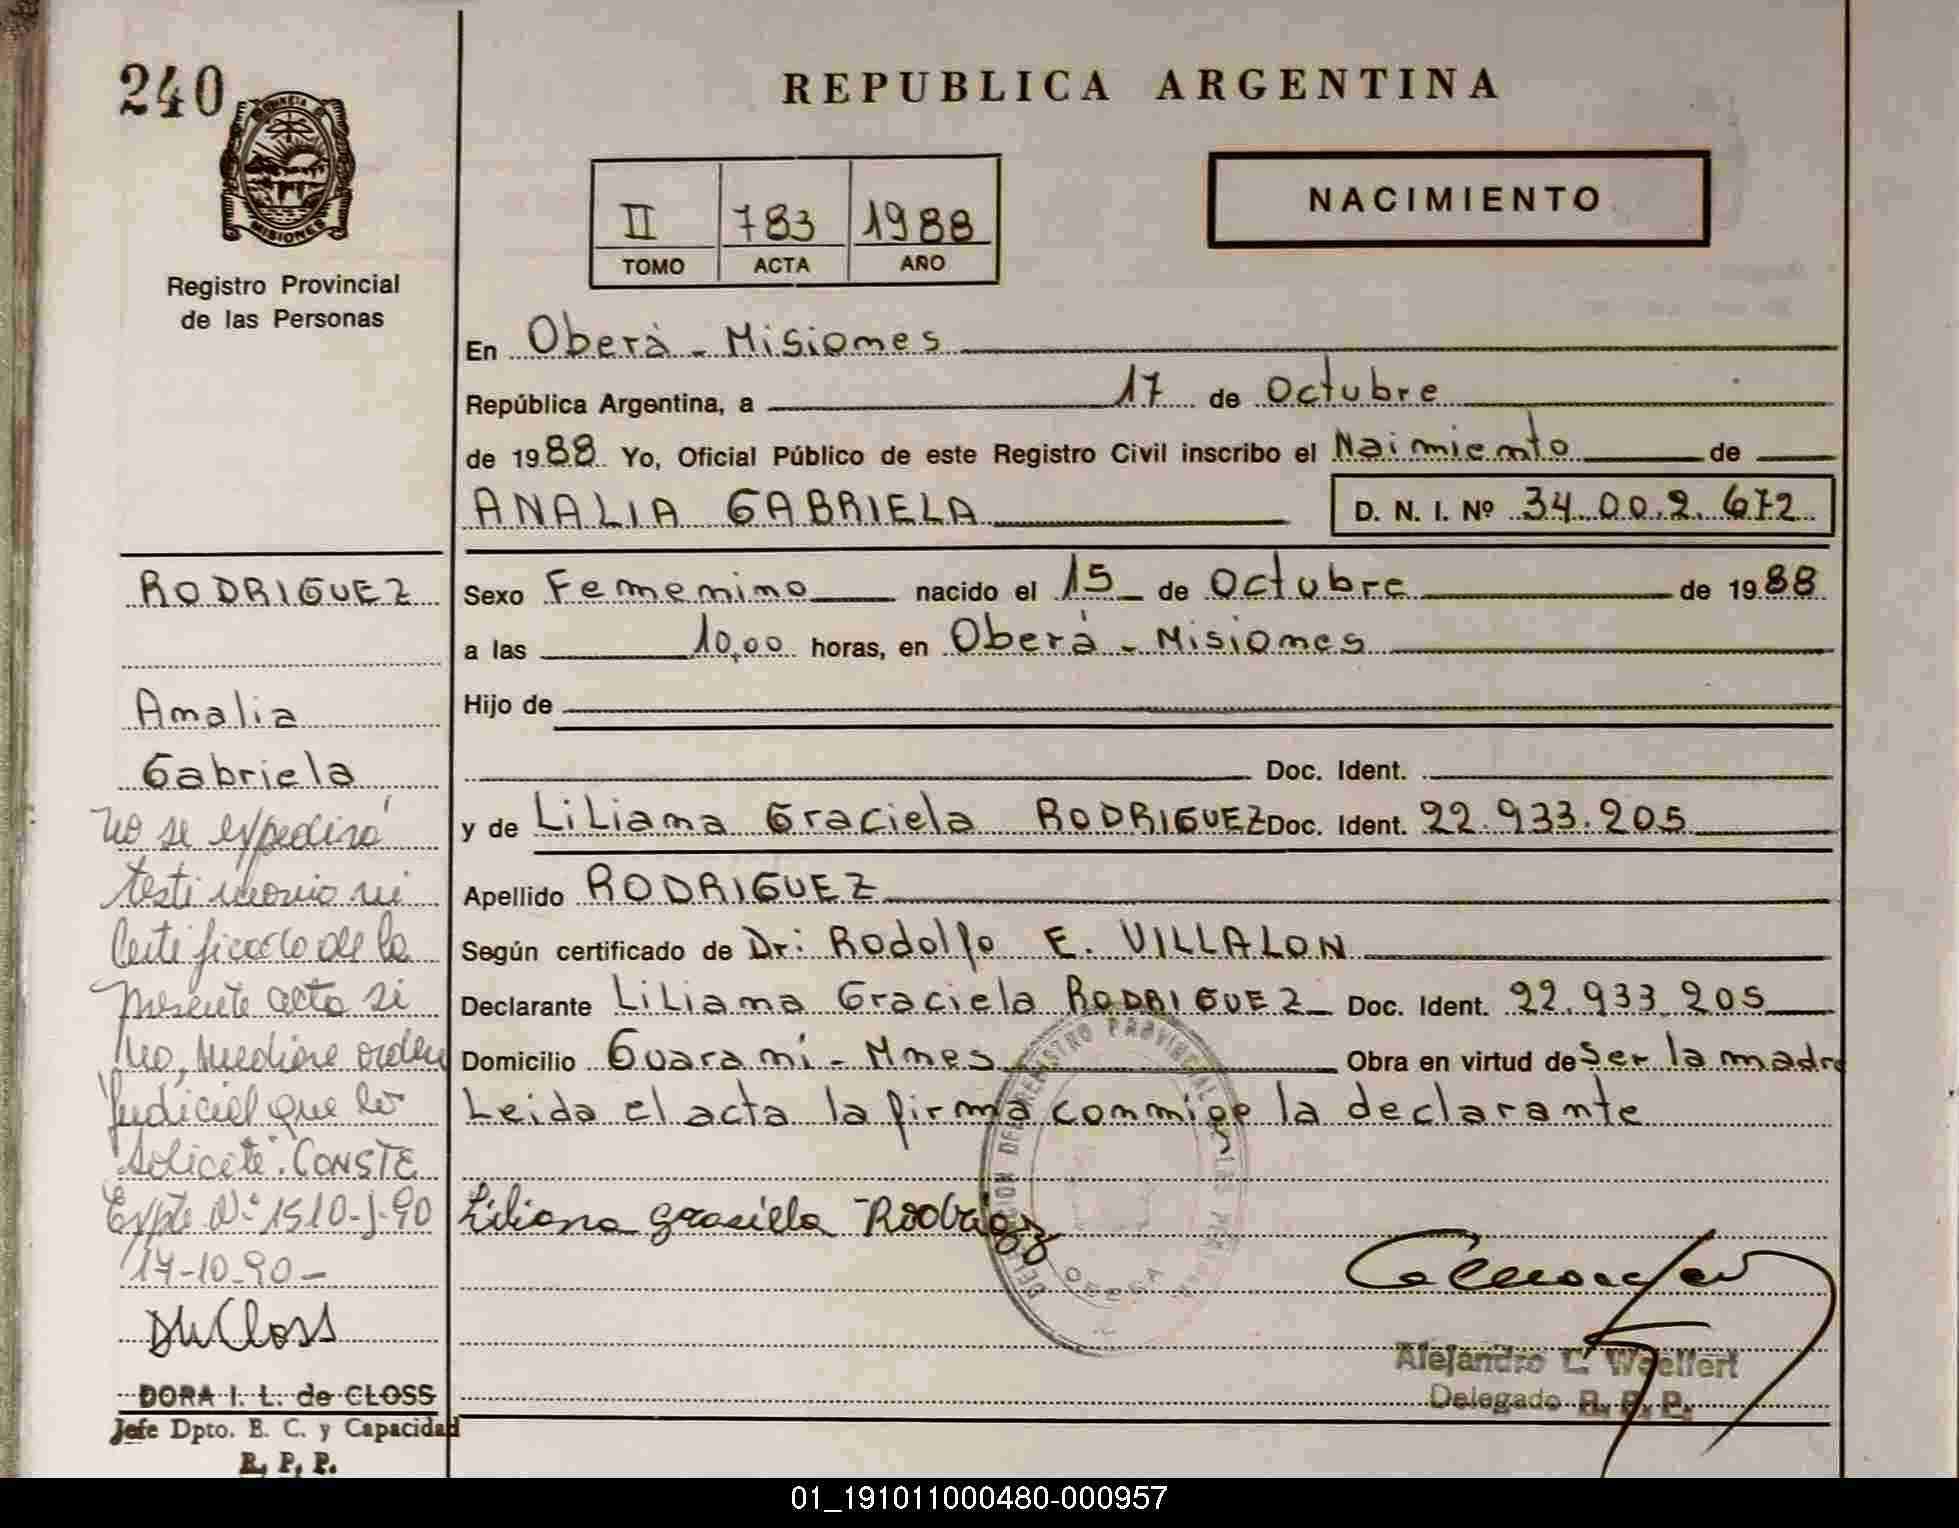 240
REPUBLICA ARGENTINA
NACIMIENTO
II 783 1988
TOMO ACTA AÑO
MISIONES
Registro Provincial
de las Personas
En Oberà - Misiones
República Argentina, a 17 de Octubre
de 1988 Yo, Oficial Público de este Registro Civil inscribo el Naimiento de
ANALIA GABRIELA D. N. I. Nº 34.002.672
RODRIGUEZ
Analia
Gabriela
no se expedirá
testimonio ni
Certificado de la
presente acta si
no, mediare orden
Judicial que lo
solicite". CONSTE
Expte Nº 1510-J-90
17-10-90-
DORA I. L. de CLOSS
Jefe Dpto. E. C. y Capacidad
R. P. P.
Sexo Femenino nacido el 15 de Octubre de 1988
a las 10,00 horas, en Oberà - Misiones
Hijo de
Doc. Ident.
y de Liliana Graciela RODRIGUEZ Doc. Ident. 22.933.205
Apellido RODRIGUEZ
Según certificado de Dr: Rodolfo E. VILLALON
Declarante Liliana Graciela RODRIGUEZ Doc. Ident. 22.933.205
Domicilio Guarani - Mnes Obra en virtud de Ser la madre
Leida el acta la firma conmigo la declarante
Liliana
Alejandro L. Woelfert
Delegado R. P. P.
01_191011000480-000957